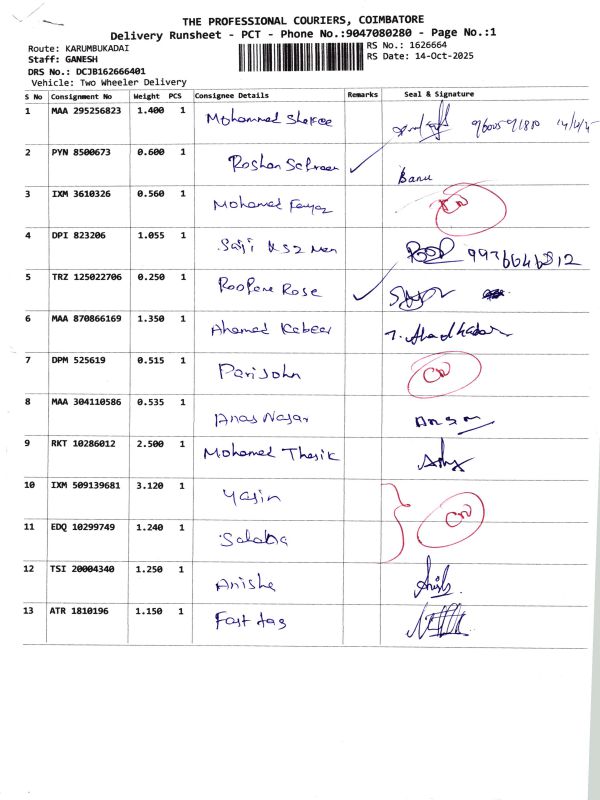 THE PROFESSIONAL COURIERS, COIMBATORE
Delivery Runsheet - PCT - Phone No.:9047080280 - Page No.:1
Route: KARUMBUKADAI
RS No.: 1626664
Staff: GANESH
RS Date: 14-Oct-2025
DRS No.: DCJB162666401
Vehicle: Two Wheeler Delivery
S No Consignment No Weight PCS Consignee Details Remarks Seal & Signature
1 MAA 295256823 1.400 1 Mohammed
2 PYN 8500673 0.600 1 Roshan Banu
3 IXM 3610326 0.560 1 Mohamed Fayaz
4 DPI 823206 1.055 1
5 TRZ 125022706 0.250 1 Rose
6 MAA 870866169 1.350 1 Ahamed Kabeer
7 DPM 525619 0.515 1 Parijohn
8 MAA 304110586 0.535 1 Anas Nasar
9 RKT 10286012 2.500 1 Mohamed Thasik
10 IXM 509139681 3.120 1 Yasin
11 EDQ 10299749 1.240 1
12 TSI 20004340 1.250 1 Anisha
13 ATR 1810196 1.150 1 Fast tag